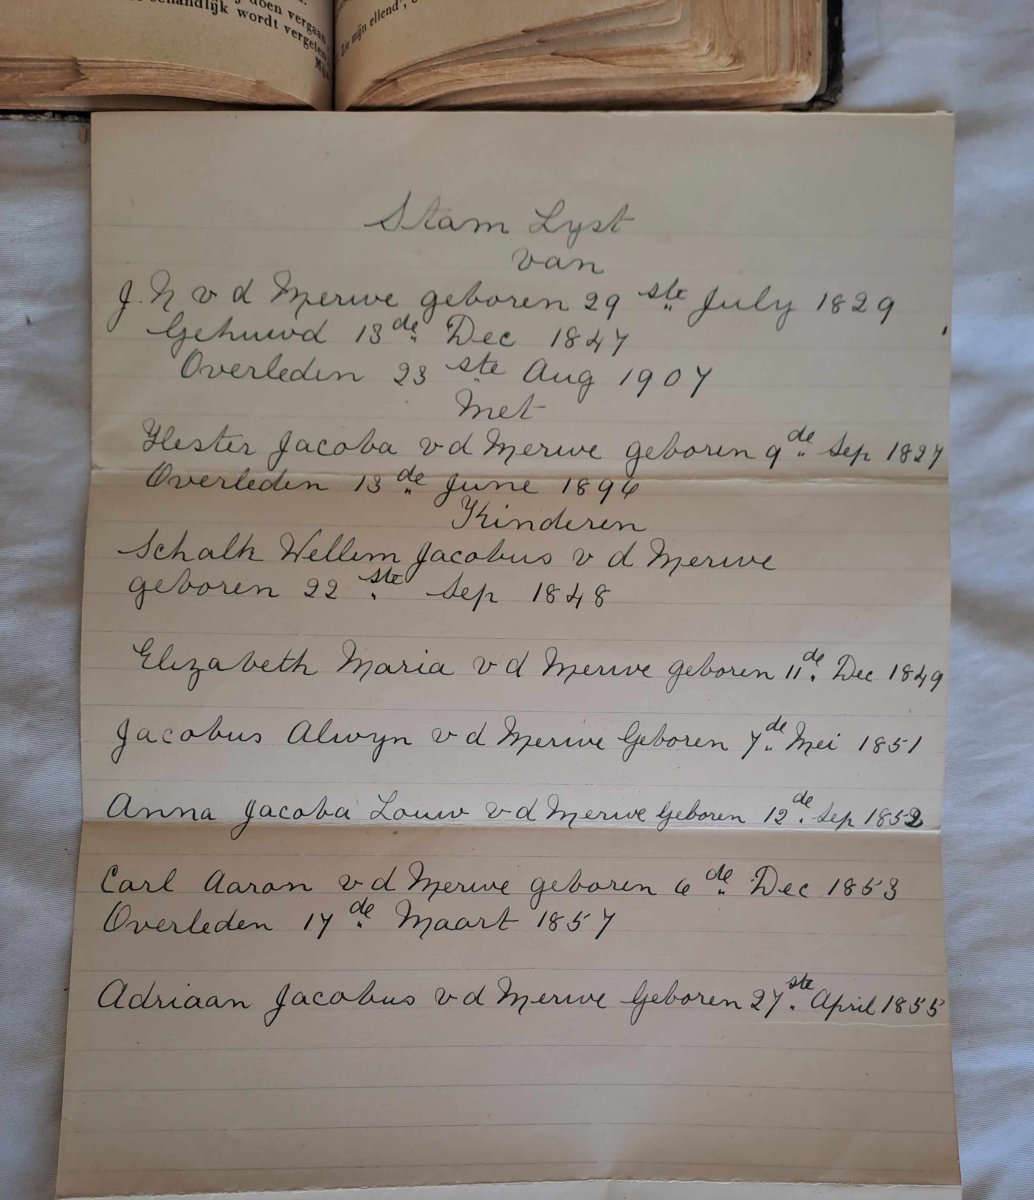 doen vergaan
behandlijk wordt vergeten
Zie mijn ellend',
Stam Lyst
van
J. N v d Merwe geboren 29 ste July 1829
Gehuwd 13 de Dec 1847
Overleden 23 ste Aug 1907
Met
Hester Jacoba v d Merwe geboren 9 de Sep 1827
Overleden 13 de June 1896
Kinderen
Schalk Wellem Jacobus v d Merwe
geboren 22 ste Sep 1848
Elizabeth Maria v d Merwe geboren 11 de Dec 1849
Jacobus Alwyn v d Merwe Geboren 7 de Mei 1851
Anna Jacoba Louw v d Merwe Geboren 12 de Sep 1852
Carl Aaron v d Merwe geboren 6 de Dec 1853
Overleden 17 de Maart 1857
Adriaan Jacobus v d Merwe Geboren 27 ste April 1855